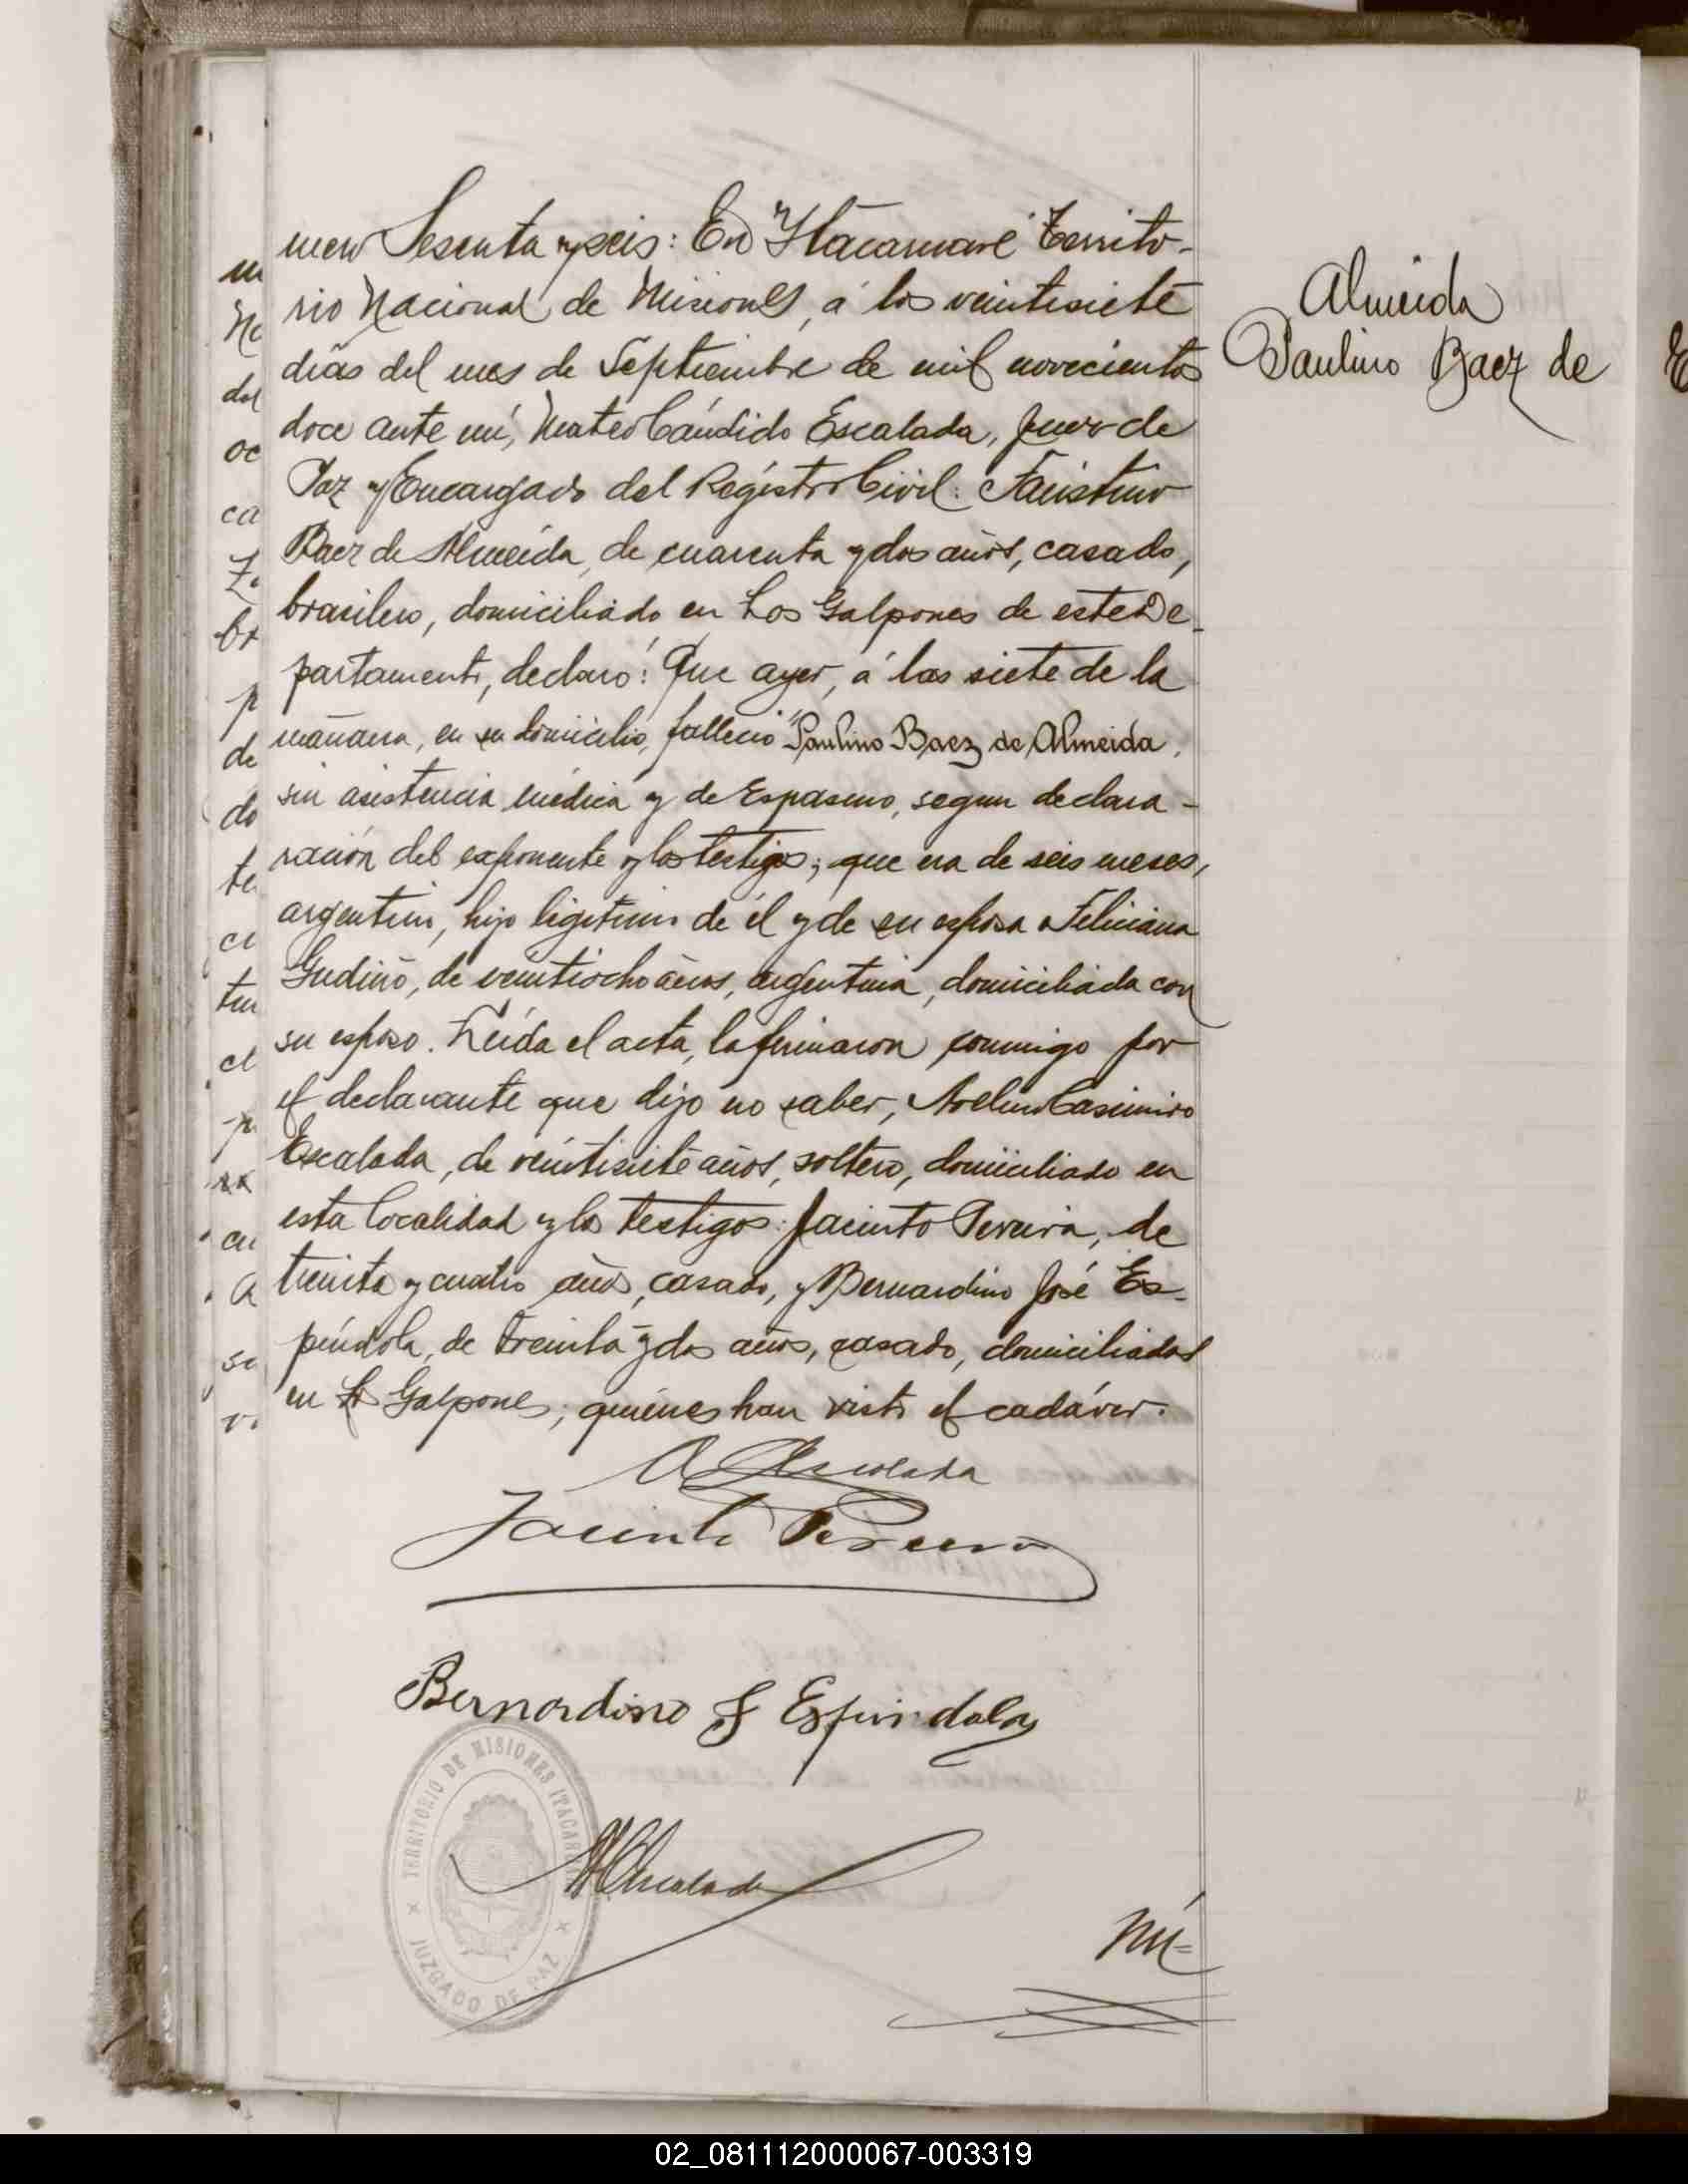 mero Sesenta y seis: En Itacaruaré Territo-
rio Nacional de Misiones, á los veintisiete
días del mes de Septiembre de mil novecientos
doce ante mí, Mateo Cándido Escalada, Juez de
Paz y Encargado del Registro Civil: Faustino
Baez de Almeida, de cuarenta y dos años, casado,
brasilero, domiciliado en Los Galpones de este De-
partamento, declaró: Que ayer, á las siete de la
mañana, en su domicilio, falleció Paulino Baez de Almeida,
sin asistencia médica y de Espasmo, segun declara-
ración del exponente y los testigos; que era de seis meses,
argentino, hijo legitimo de él y de su esposa Feliciana
Gudiño, de veintiocho años, argentina, domiciliada con
su esposo. Leída el acta, la firmaron conmigo por
el declarante que dijo no saber, Avelino Casimiro
Escalada, de veintisiete años, soltero, domiciliado en
esta localidad y los testigos: Jacinto Pereira, de
treinta y cuatro años, casado, y Bernardino José Es-
píndola, de treinta y dos años, casado, domiciliados
en Los Galpones; quiénes han visto el cadáver.
A Escalada
Jacinto Pereira
Bernardino J Espindola
TERRITORIO DE MISIONES ITACARUARÉ
JUZGADO DE PAZ
M C Escalada
Nú=
Almeida
Paulino Baez de
m
No
del
oc
ca
Za
br
p
de
do
te
ci
tin
el
p
ra
cu
a
se
v
E
02_081112000067-003319